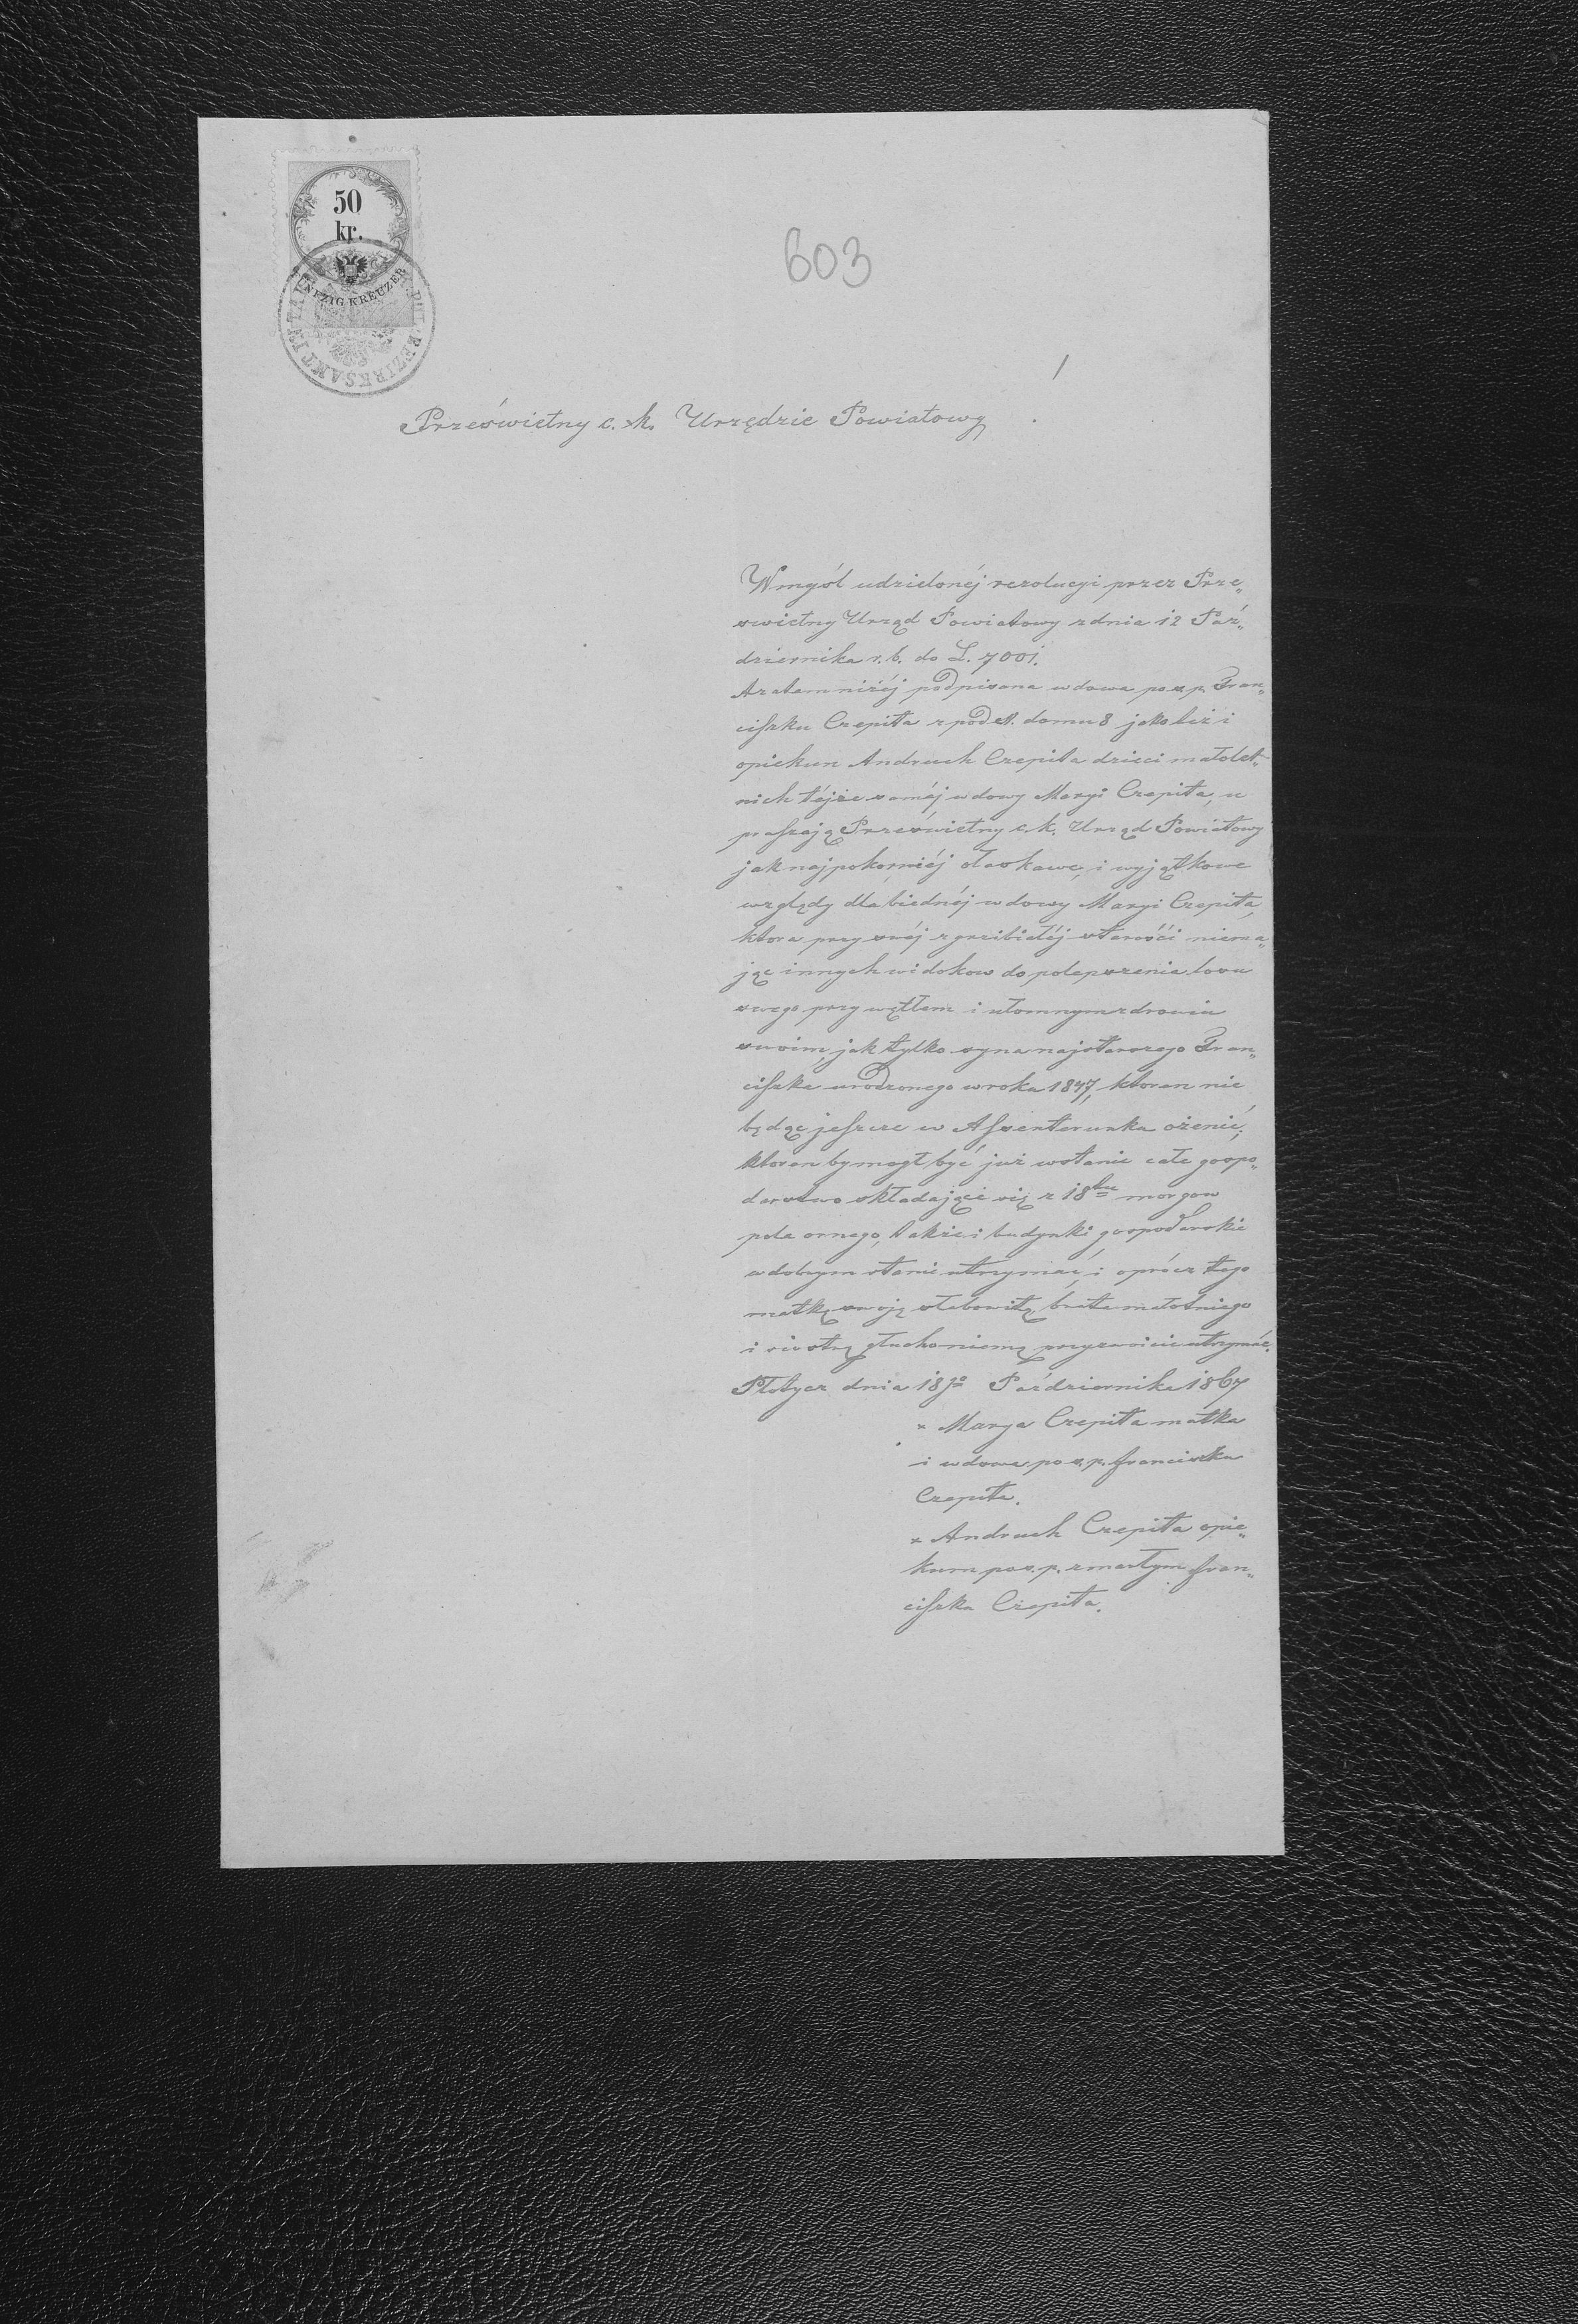 50
kr.
FNFZIG KREUZER
BEZIRKSAMT IN TA
603
Prześwietny c. k. Urzędzie Powiatowy !
Wmyśl udzielonéj rezolucyi przez Prze„
swietny Urząd Powiatowy z dnia 12 Paź„
dziernika r. b. do L. 7001.
Azatem niżéj podpisana wdowa po s. p. Fran„
ciszku Czepiła z pod N. domu 8 jako też i
opiekun Andruch Czepiła dzieci małolet„
nich tejże saméj wdowy Maryi Czepiła, u
praszają Prześwietny c. k. Urząd Powiatowy
jak najpokorniéj o łaskawe, i wyjątkowe
względy dla biednéj wdowy Maryi Czepiła,
ktora przy swéj zgrzibiałéj starości niema„
jąc innych widokow do polepszenia losu
swego przy wętłem i ułomnym zdrowiu
swoim, jak tylko syna najstarszego Fran„
ciszka urodzonego w roku 1847, ktoren nie
będąc jeszcze w Assenterunku ożenić,
ktoren by mogł być już wstanie całe gospo„
darstwo składające się z 18tu morgow
pola ornego, także i budynki gospodarskie
w dobrym stanie utrzymać, i oprócz tego
matkę swoję słabowitę, brata małotniego
i siostrę głuchoniemę przyzwoicie utrzymać.
Płotycz dnia 18go Października 1867
× Marya Czepiła matka
i wdowa po s. p. Franciszku
Czepiła.
× Andruch Czepiła opie„
kun po s. p. zmarłym Fran„
ciszku Czepiła.